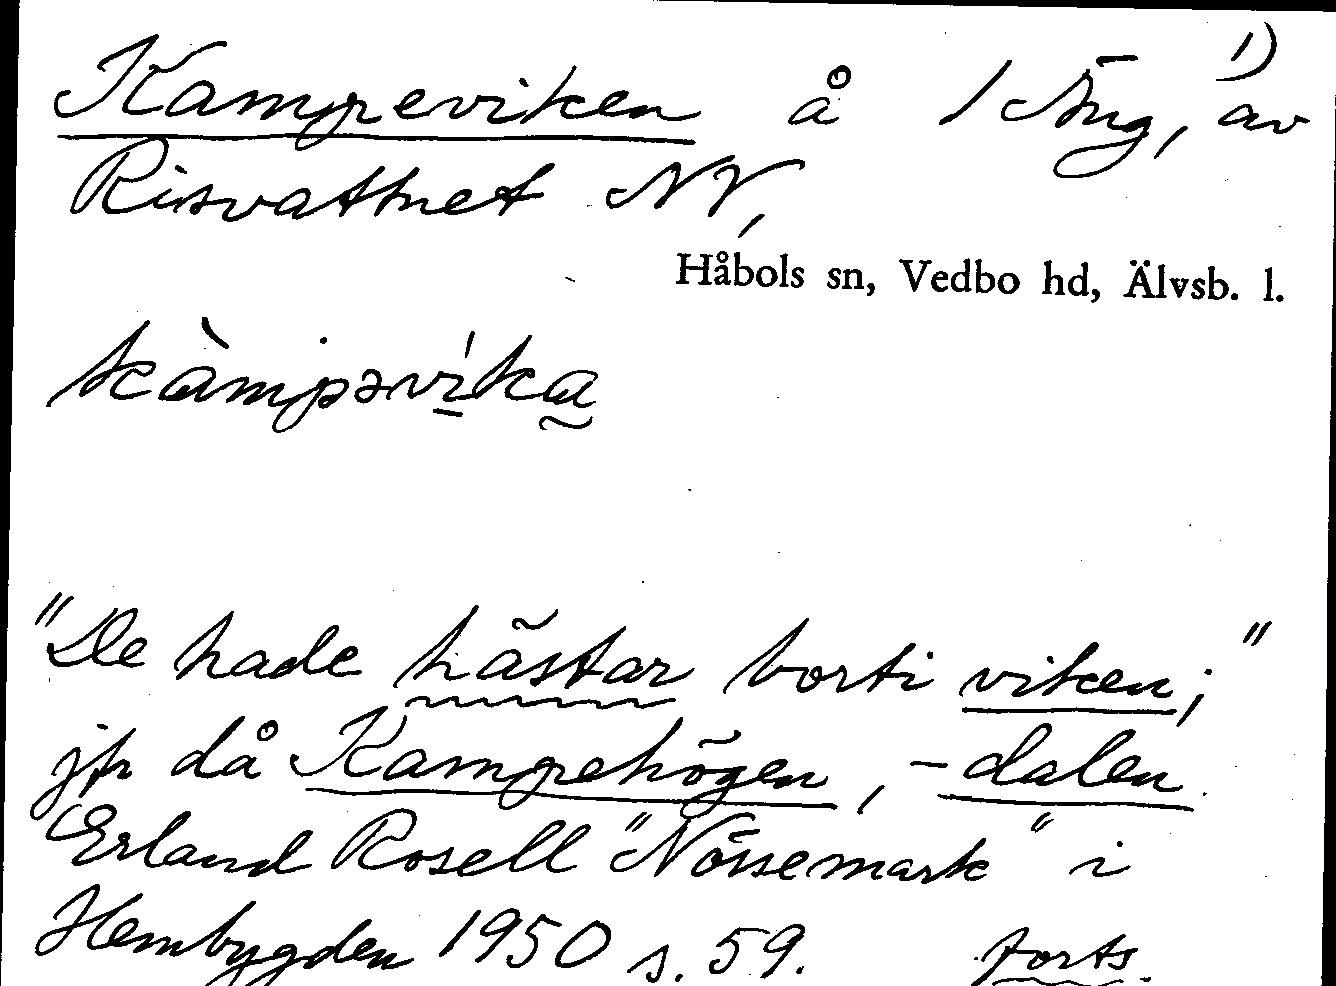 Kampeviken å 1 Äng, 1) av
Risvattnet NV,
Håbols sn, Vedbo hd, Älvsb. l.
kàmpəvíka
"De hade hästar borti viken;"
jfr då Kampehögen, -dalen
Erland Rosell "Nössemark" i
Hembygden 1950 s. 59. forts.